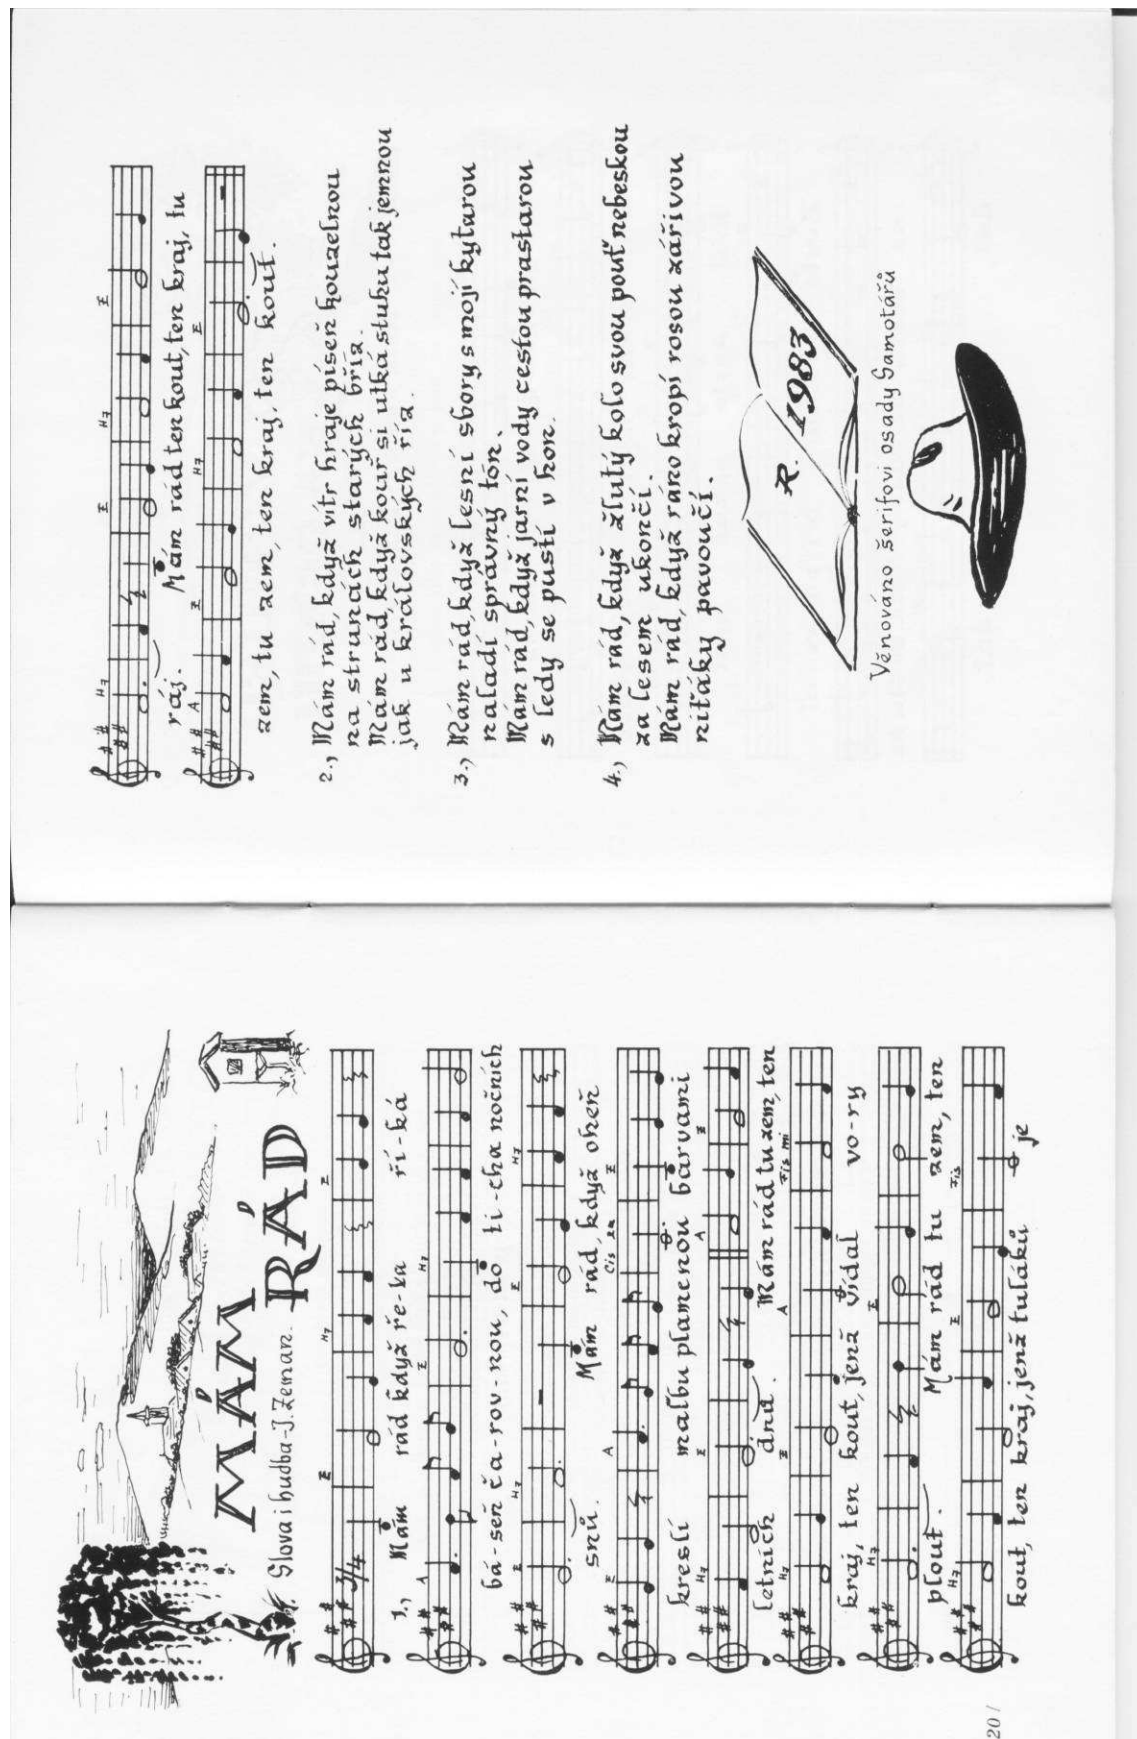 MÁM RÁD
Slova i hudba - J. Zeman.
3/4
E H7 E
1., Mám rád když ře-ka ří-ká
A E H7
bá-seň ča-rov-nou, do ti-cha nočních
E H7 E H7
snů. Mám rád, když oheň
E A E
kreslí malbu plamenou barvami
H7 E A E
letních dnů. Mám rád tu zem, ten
H7 E A Fis mi
kraj, ten kout, jenž vídal vo-ry
H7 E
plout. Mám rád tu zem, ten
H7 E Fis
kout, ten kraj, jenž tuláků je
20 /
H7 E H7 E
ráj. Mám rád ten kout, ten kraj, tu
A E H7 E
zem, tu zem, ten kraj, ten kout.
2., Mám rád, když vítr hraje píseň kouzelnou
na strunách starých bříz.
Mám rád, když kouř si utká stuhu tak jemnou
jak u královských říz.
3.) Mám rád, když lesní sbory s mojí kytarou
naladí správný tón.
Mám rád, když jarní vody cestou prastarou
s ledy se pustí v hon.
4.) Mám rád, když žlutý kolo svou pouť nebeskou
za lesem ukončí.
Mám rád, když ráno kropí rosou zářivou
niťáky pavoučí.
R. 1983
Věnováno šerifovi osady Samotářů